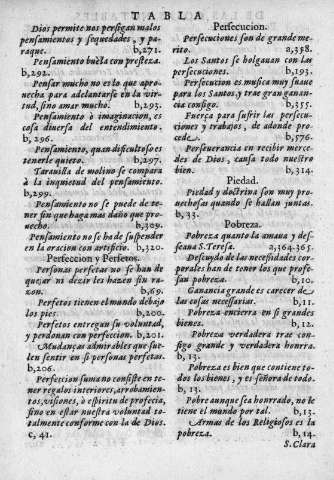 TABLA
Dios permite nos persigan malos
pensamientos y sequedades, y pa-
raque. b,271.
Pensamiento buela con presteza.
b,292.
Pensar mucho no es lo que apro-
uecha para adelantarse en la vir-
tud, sino amar mucho. b,293.
Pensamiento ò imaginacion, es
cosa diuersa del entendimiento.
b, 296.
Pensamiento, quan difficultoso es
tenerle quieto. b,297.
Tarauilla de molino se compara
à la inquietud del pensamiento.
b,299.
Pensamiento no se puede de te-
ner sin que haga mas daño que pro-
uecho. b,309.
Pensamiento no se ha de suspender
en la oracion con artificio. b,320.
Perfeccion y Perfetos.
Personas perfetas no se han de
quejar ni dezir les hazen sin ra-
zon. b,69.
Perfetos tienen el mundo debajo
los pies. b,200.
Perfetos entregan su voluntad,
y perdonan con perfeccion. b,201.
Mudanças admirables que sue-
len sentir en si personas perfetas.
b,206.
Perfeccion suma no consiste en te-
ner regalos interiores, arrobamien-
tos, visiones, ò espiritu de profecia,
sino en estar nuestra voluntad to-
talmente conforme con la de Dios.
c, 41.
Persecucion.
Persecuciones son de grande me-
rito. a,358.
Los Santos se holgauan con las
persecuciones. b,195.
Persecucion es musica muy suaue
para los Santos, y trae gran ganan-
cia consigo. b,355.
Fuerça para sufrir las persecu-
ciones y trabajos, de adonde pro-
cede. b,576.
Perseuerancia en recibir merce-
des de Dios, cansa todo nuestro
bien. b,314.
Piedad.
Piedad y doctrina son muy pro-
uechosas quando se hallan juntas.
b, 33.
Pobreza.
Pobreza quanto la amaua y des-
seaua S. Teresa. a,364.365.
Descuydo de las necessidades cor-
porales han de toner los que profe-
san pobreza. b,10.
Ganancia grande es carecer de
las cosas necessarias. b,11.
Pobreza encierra en si grandes
bienes. b,12.
Pobreza verdadera trae con-
sigo grande y verdadera honrra.
b, 13.
Pobreza es bien que contiene to-
dos los bienes, y es señora de todo.
b, 13.
Pobre aunque sea honrrado, no le
tiene el mundo por tal. b,13.
Armas de los Religiosos es la
pobreza. b,14.
S. Clara